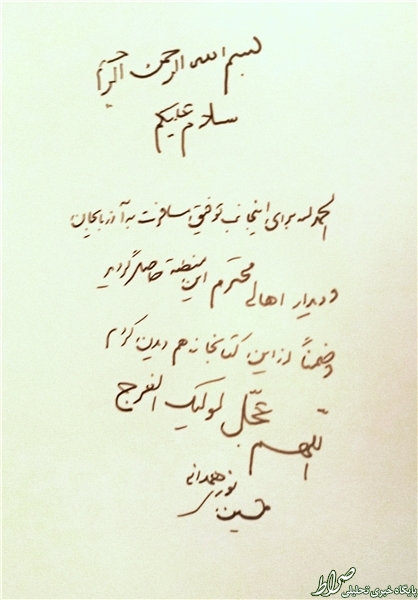 بسم الله الرحمن الرحیم
سلام علیکم
الحمدلله برای اینجانب توفیق مسافرت به آذربایجان
و دیدار اهالی محترم این منطقه حاصل گردید
و ضمناً از این کتابخانه هم دیدن کردم
اللهم عجّل لولیک الفرج
نوری همدانی
حسین
صراط
پایگاه خبری تحلیلی